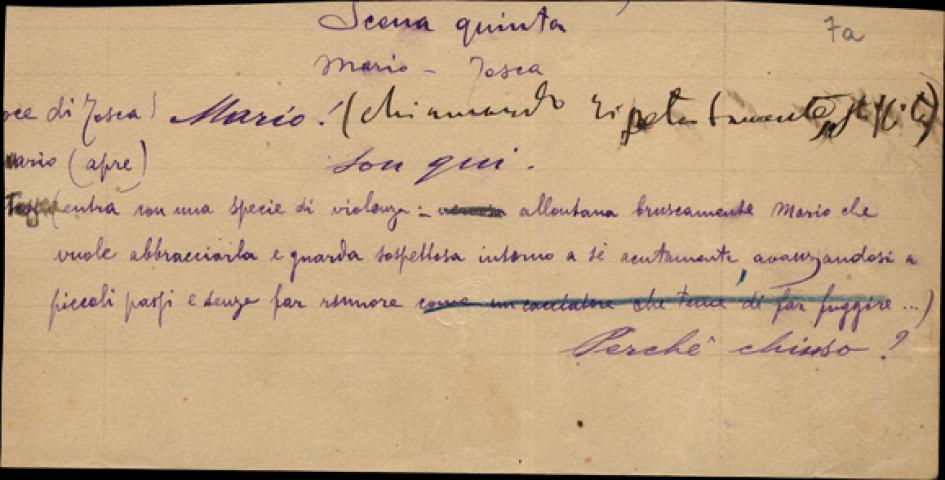 Scena quinta
7a
Mario - Tosca
oce di Tosca) Mario! (chiamando ripetutamente, stizzita)
Mario (apre) son qui.
Tosca (entra con una specie di violenza: allontana bruscamente Mario che
vuole abbracciarla e guarda sospettosa intorno a sè acutamente avanzandosi a
piccoli passi e senza far rumore come un cacciatore che teme di far fuggire ...)
Perchè chiuso?